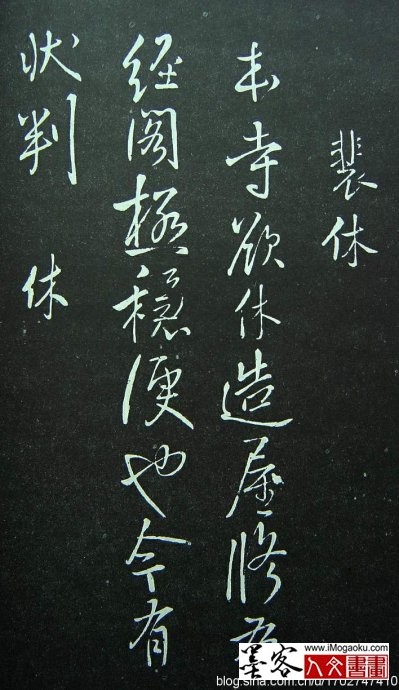 裴休
本寺欲休造屋修
經閣極穩便也今有
状判 休
www.iMogaoku.com
墨客
blog.sina.com.cn/u/1702747410